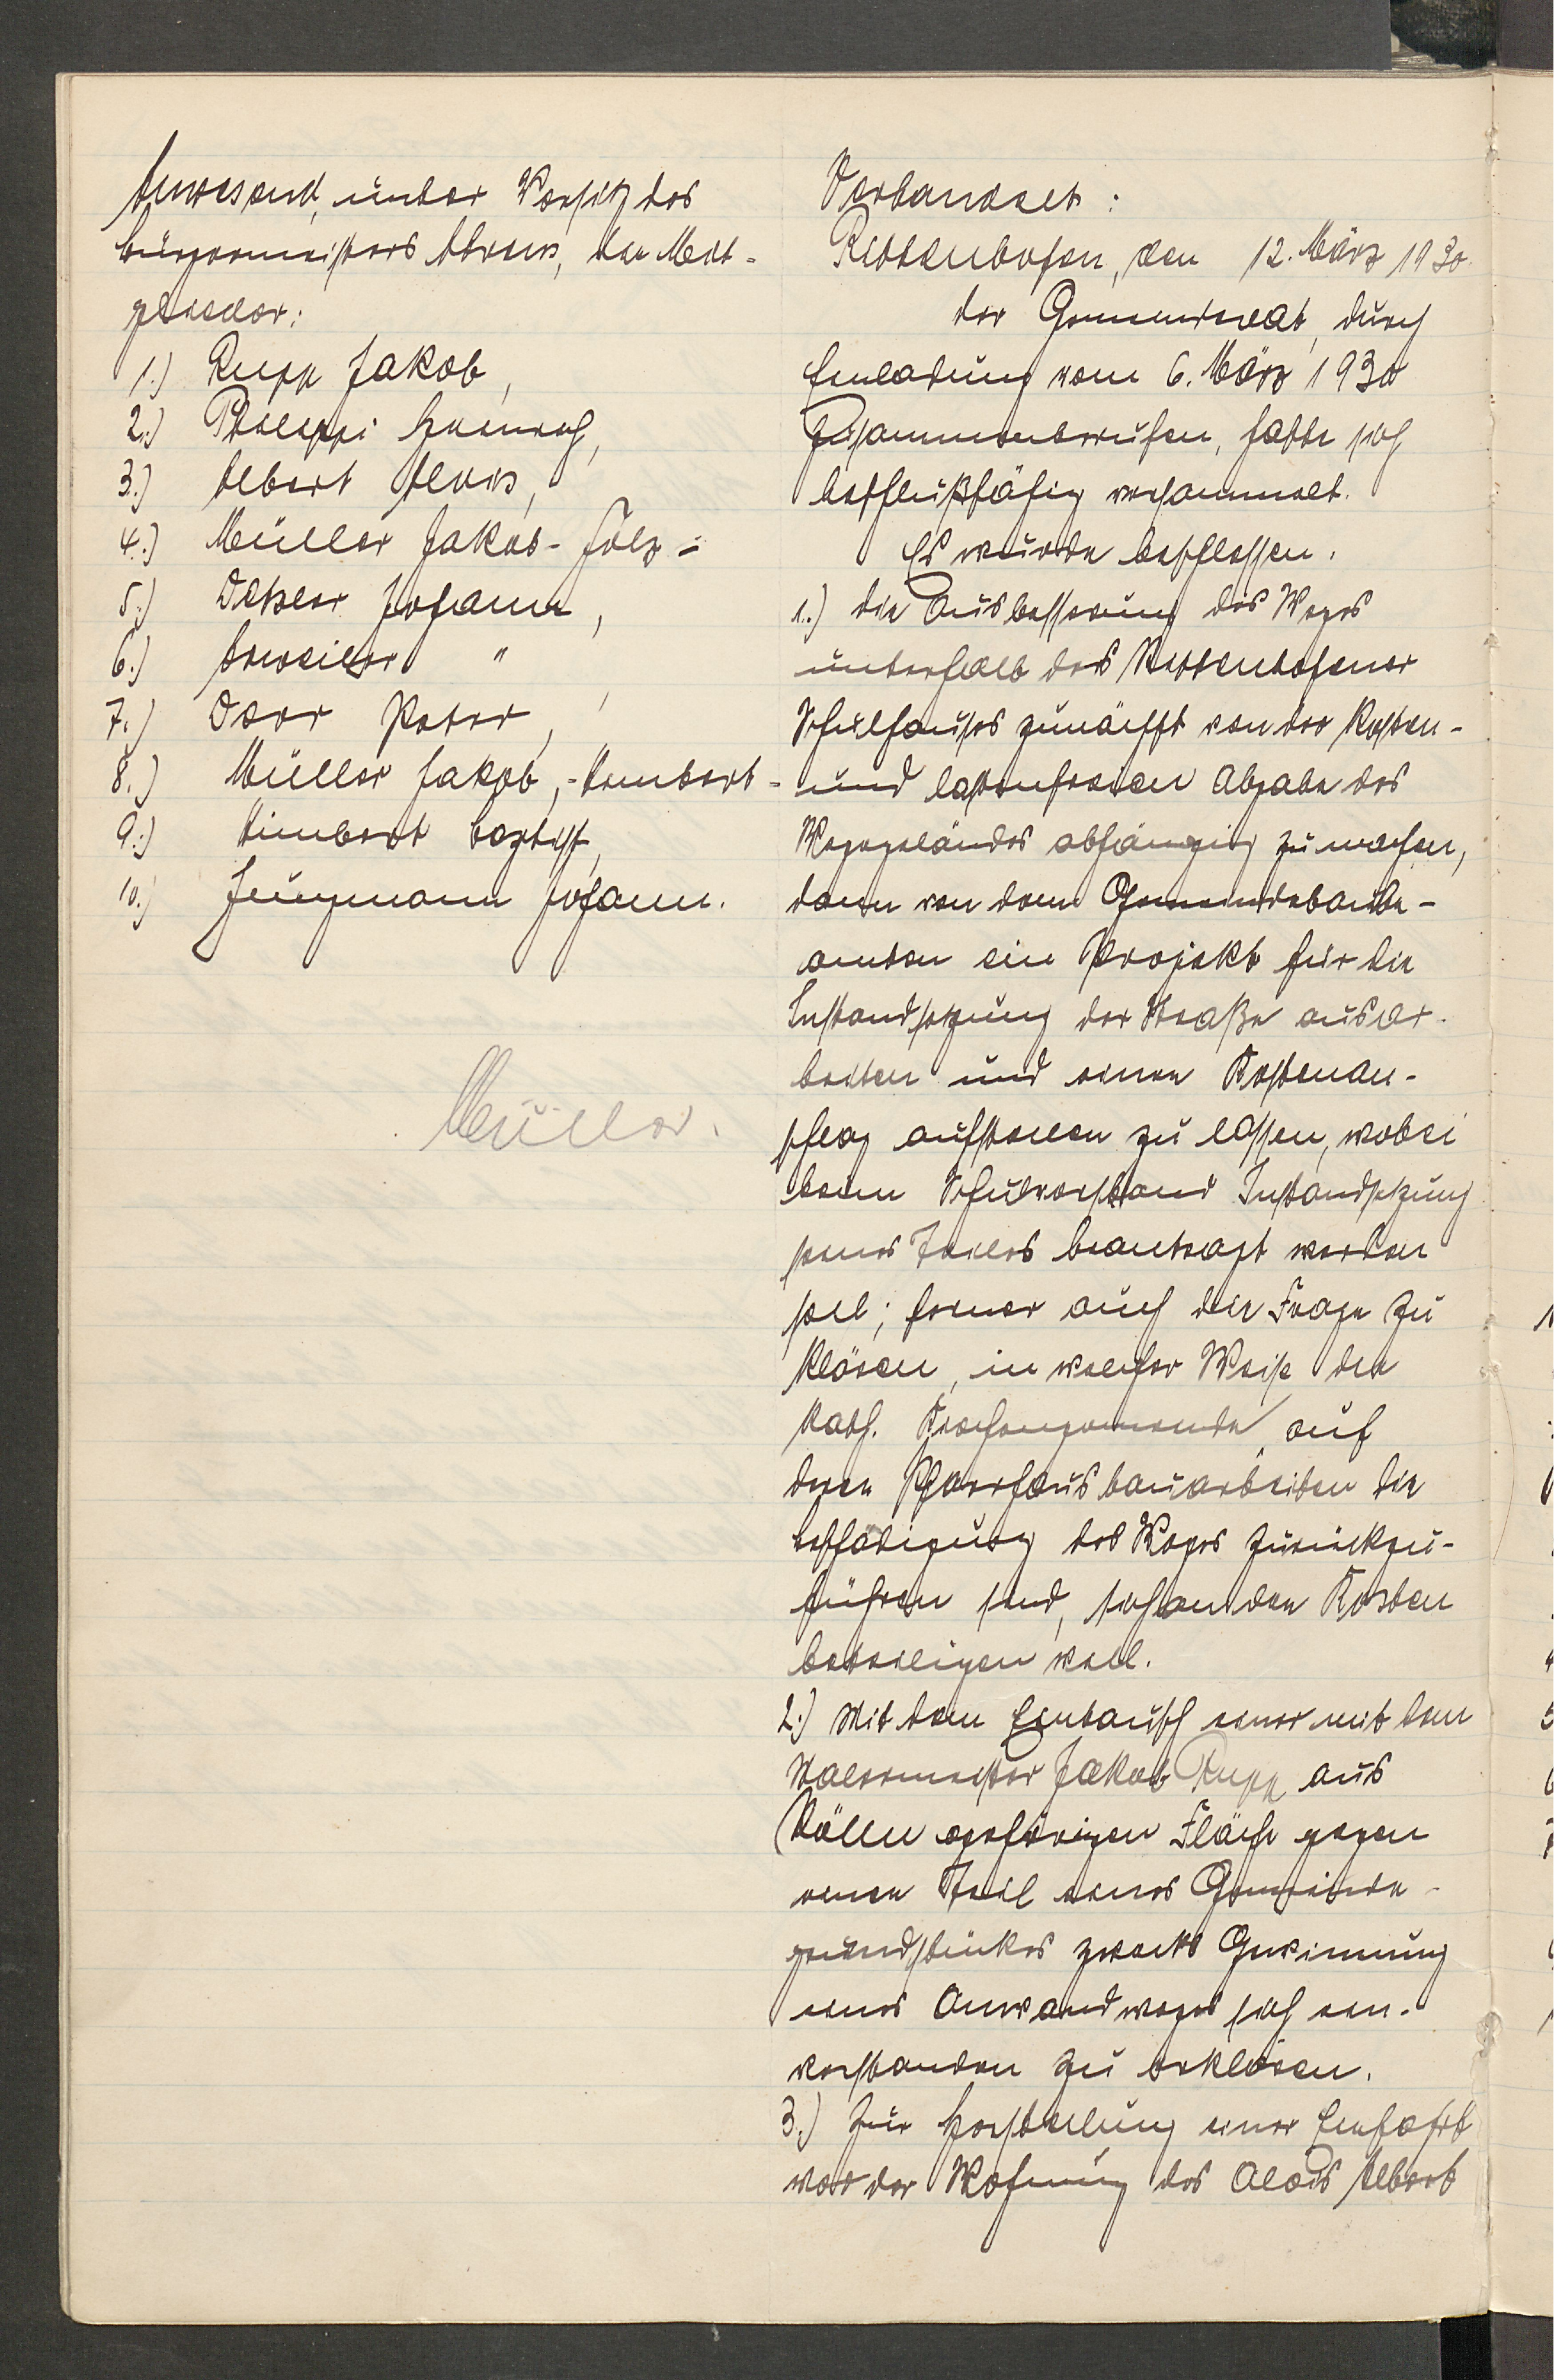 Anwesend, unter Vorsitz des
Bürgermeisters Ahrens, die Mit-
glieder:
1.) Rupp Jakob,
2.) Philippi Heinrich,
3.) Albert Alois,
4.) Müller Jakob-Folz-
5.) Detzler Johann,
6.) Erweiler " ,
7.) Dörr Peter,
8.) Müller Jakob,-Kimbert-
9.) Kimbert Baptist,
10.) Jungmann Johann.
Müller.
Verhandelt:
Rittenhofen, den 12. März 1930.
der Gemeinderat, durch
Einladung vom 6. März 1930
zusammenberufen, hatte sich
beschlußfähig versammelt.
Es wurde beschlossen.
1.) die Ausbesserung des Weges
unterhalb des Rittenhofener
Schulhauses zunächst von der kosten-
und lastenfreien Abgabe des
Wegegeländes abhängig zu machen,
dann von dem Gemeindebaube-
amten ein Projekt für die
Instandsetzung der Straße ausar-
beiten und einen Kostenan-
schlag aufstellen zu lassen, wobei
beim Schulvorstand Instandsetzung
seines Teiles beantragt werden
soll; ferner auch die Frage zu
klären, in welcher Weise die
kath. Kirchengemeinde, auf
deren Pfarrhausbauarbeiten die
Beschädigung des Weges zurückzu-
führen sind, sich an den Kosten
beteiligen will.
2.) Mit dem Eintausch einer mit dem
Malermeister Jakob Rupp aus
Kölln gehörigen Fläche gegen
einen Teil eines Gemeinde-
grundstückes zwecks Gewinnung
eines Anwandweges sich ein-
verstanden zu erklären.
3.) Zur Herstellung einer Einfahrt
vor der Wohnung des Alois Albert